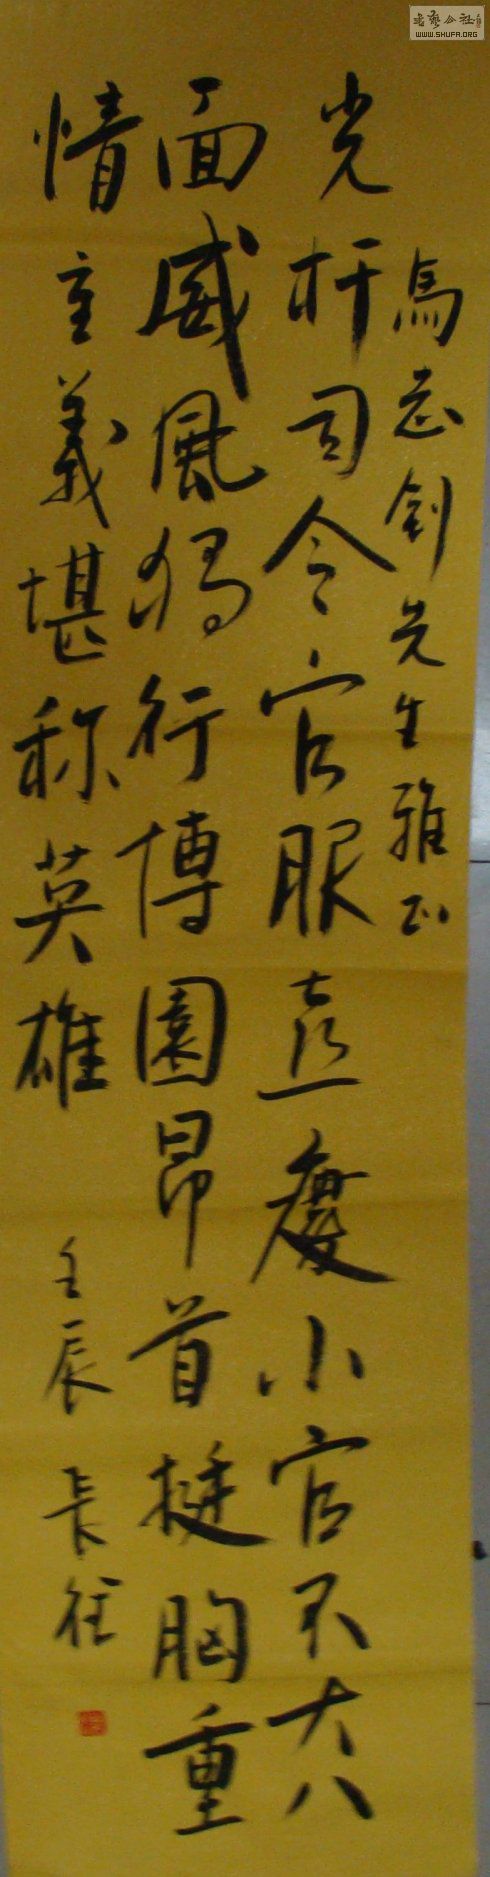 馬志釗先生雅正
光杆司令官服喜慶小官不大八
面威風独行博園昂首挺胸重
情主義堪称英雄
壬辰 長征
书艺公社
WWW.SHUFA.ORG